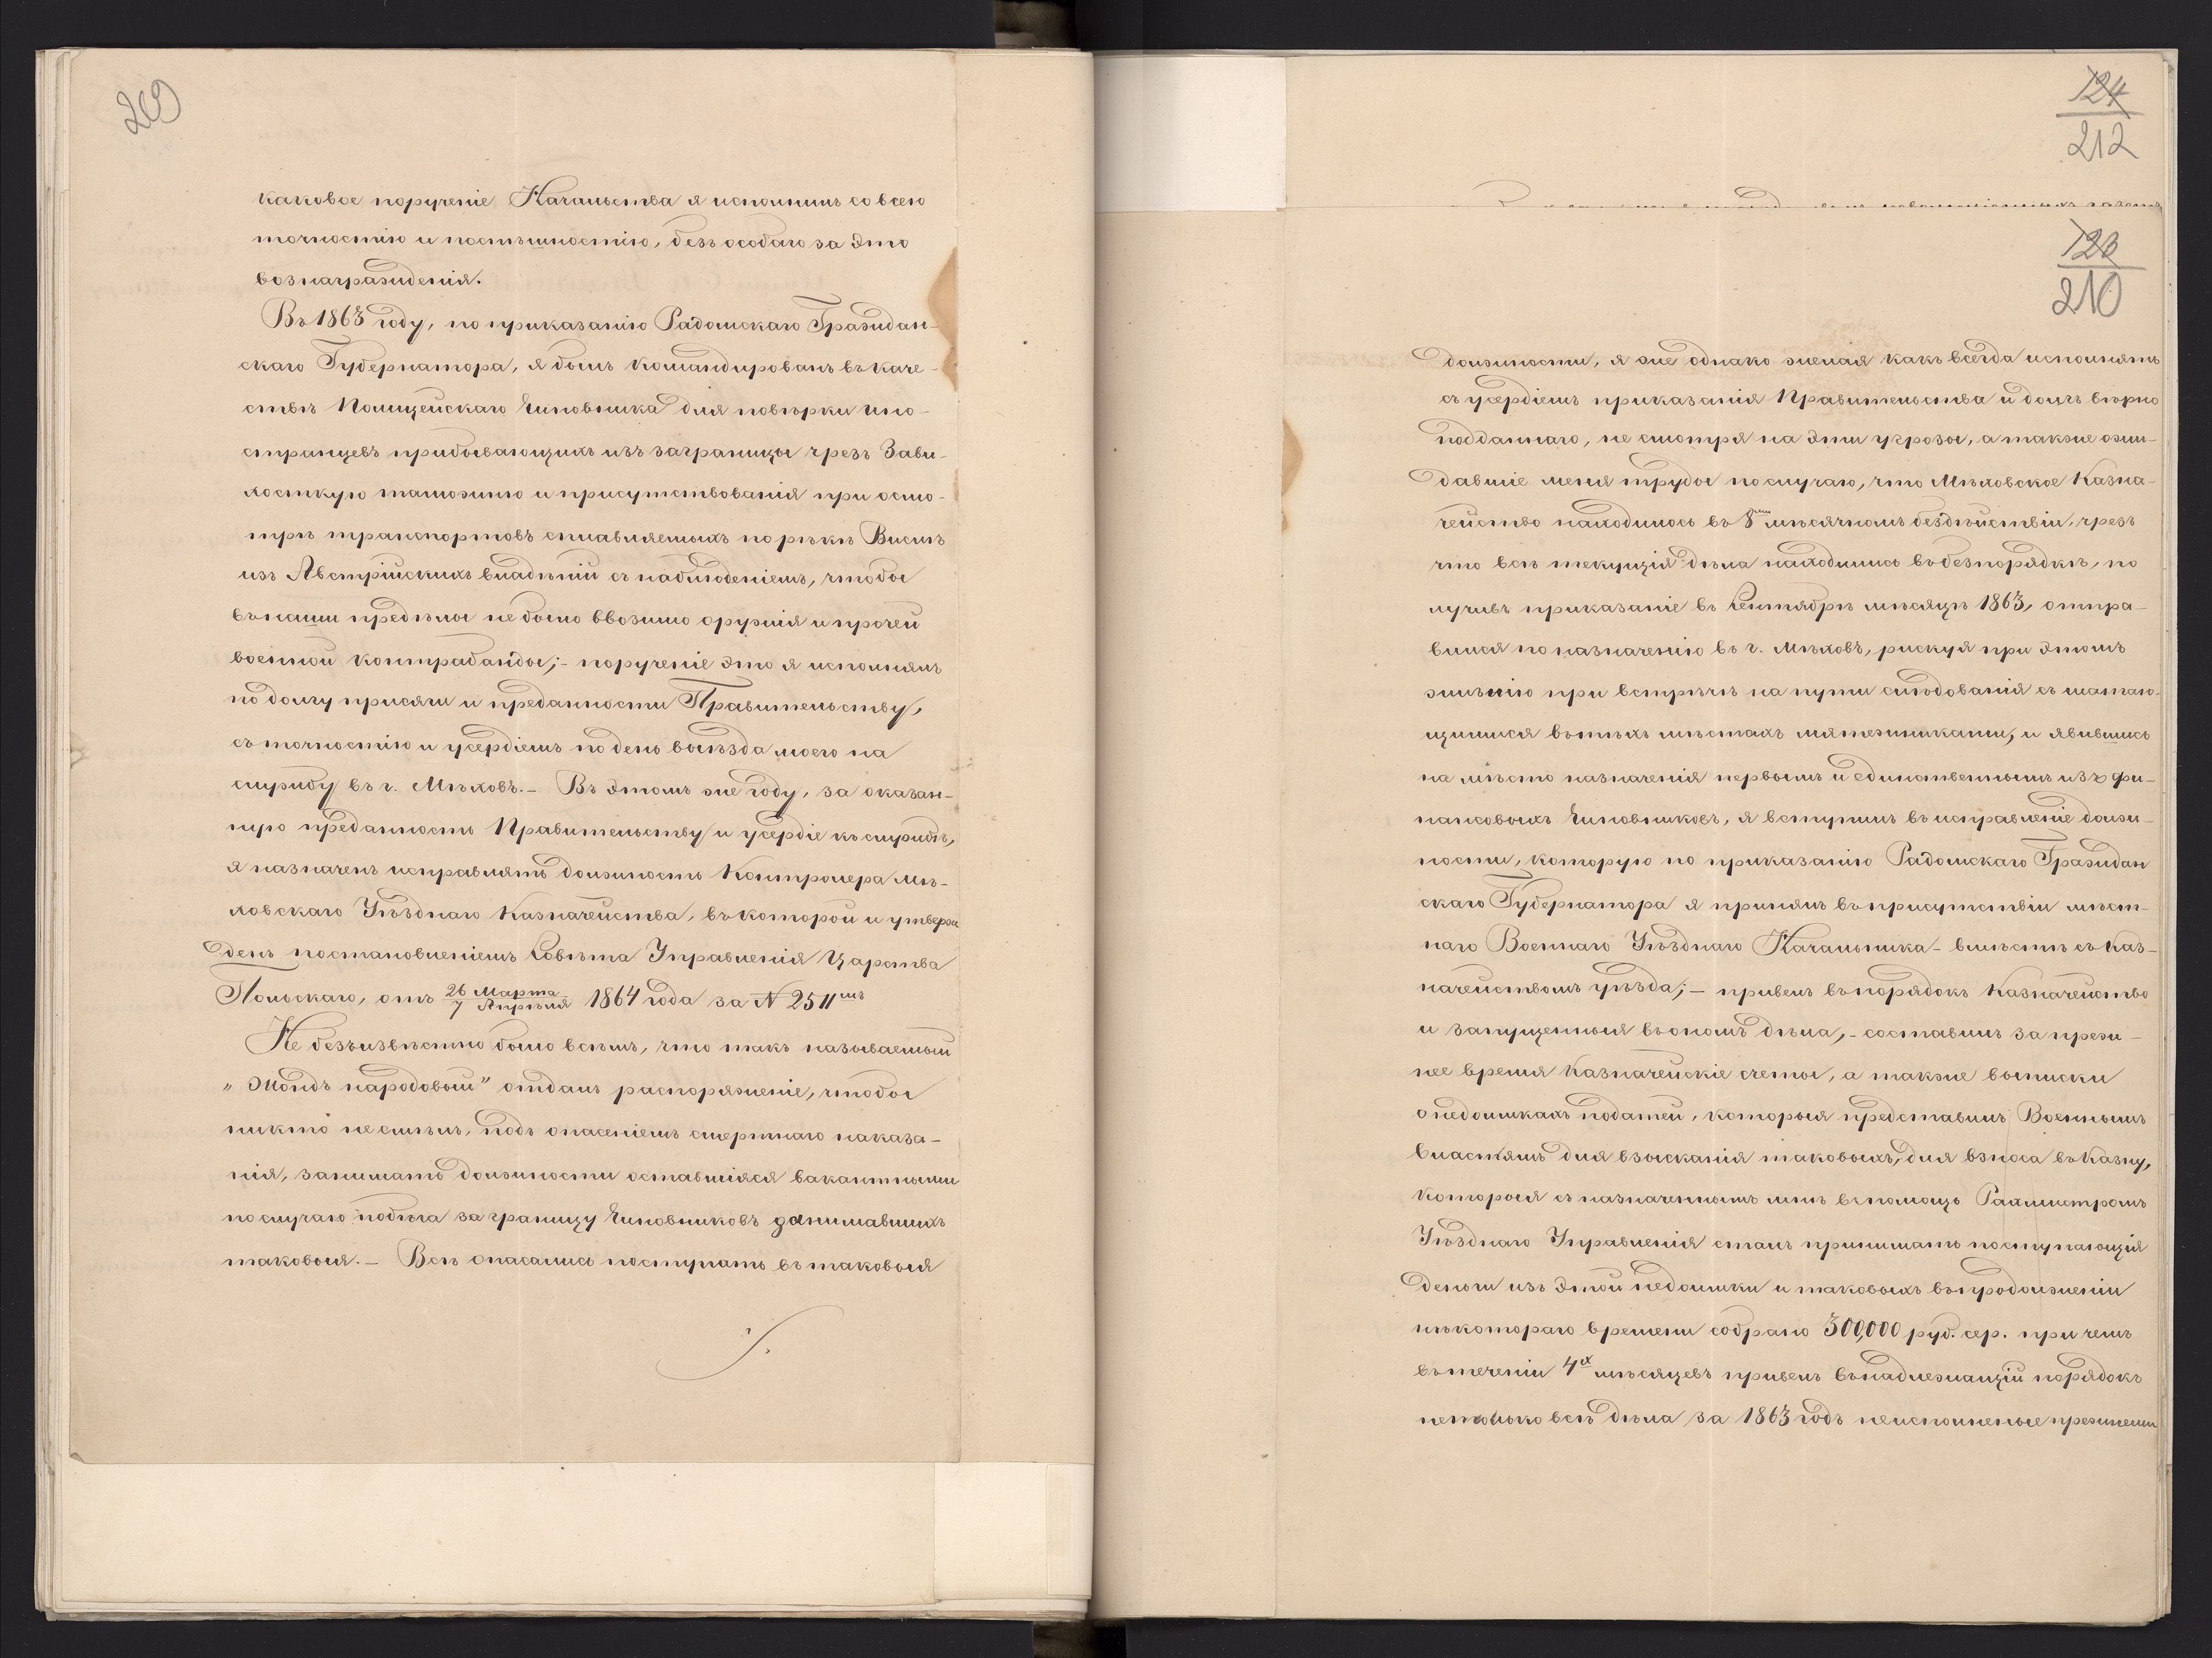 209
каковое порученіе Начальства я исполнилъ со всею
точностію и поспѣшностію, безъ особаго за это
вознагражденія.
Въ 1863 году, по приказанію Радомскаго Граждан-
скаго Губернатора, я былъ командированъ въ каче-
ствѣ Полицейскаго Чиновника для повѣрки ино-
странцевъ прибывающихъ изъ заграницы чрезъ Зави-
хостскую таможню и присутствованія при осмо-
трѣ транспортовъ сплавляемыхъ по рѣкѣ Вислѣ
изъ Австрійскихъ владѣній съ наблюденіемъ, чтобы
въ наши предѣлы не было ввозимо оружія и прочей
военной контрабанды; - порученіе это я исполнялъ
по долгу присяги и преданности Правительству,
съ точностію и усердіемъ по день выѣзда моего на
службу въ г. Мѣховъ. - Въ этомъ же году, за оказан-
ную преданность Правительству и усердіе къ службѣ,
я назначенъ исправлять должность Контролера Мѣ-
ховскаго Уѣзднаго Казначейства, въ которой и утверж
денъ постановленіемъ Совѣта Управленія Царства
Польскаго, отъ 26 Марта/7 Апрѣля 1864 года за N 2511мъ
Не безъизвѣстно было всѣмъ, что такъ называемый
„Жондъ народовый" отдалъ распоряженіе, чтобы
никто не смѣлъ, подъ опасеніемъ смертнаго наказа-
нія, занимать должности оставшіяся вакантными
по случаю побѣга за границу Чиновниковъ занимавшихъ
таковыя. - Всѣ опасались поступать въ таковыя
124
212
123
210
должности, я же однако желая какъ всегда исполнять
съ усердіемъ приказанія Правительства и долгъ вѣрно
подданнаго, не смотря на эти угрозы, а также ожи-
давшіе меня труды по случаю, что Мѣховское Казна-
чейство находилось въ 8ми мѣсячномъ бездѣйствіи, чрезъ
что всѣ текущія дѣла находились въ безпорядкѣ, по
лучивъ приказаніе въ Сентябрѣ мѣсяцѣ 1863, отпра-
вился по назначенію въ г. Мѣховъ, рискуя при этомъ
жизнію при встрѣчѣ на пути слѣдованія съ шатаю-
щимися въ тѣхъ мѣстахъ мятежниками, и явившись
на мѣсто назначенія первымъ и единственнымъ изъ фи-
нансовыхъ Чиновниковъ, я вступилъ въ исправленіе долж-
ности, которую по приказанію Радомскаго Граждан
скаго Губернатора я принялъ въ присутствіи мѣст-
наго Военнаго Уѣзднаго Начальника - вмѣстѣ съ Каз-
начействомъ уѣзда; - привелъ въ порядокъ Казначейство
и запущенныя въ ономъ дѣла, - составилъ за преж-
нее время Казначейскіе счеты, а также выписки
о недоимкахъ податей, которыя представилъ Военнымъ
властямъ для взысканія таковыхъ, для взноса въ Казну,
которыя съ назначеннымъ мнѣ въ помощь Рахмистромъ
Уѣзднаго Управленія сталъ принимать поступающія
деньги изъ этой недоимки и таковыхъ въ продолженіи
нѣкотораго времени собрано 300,000 руб. сер. при чемъ
въ теченіи 4х мѣсяцевъ привелъ въ надлежащій порядокъ
не только всѣ дѣла за 1863 годъ неисполненые прежними